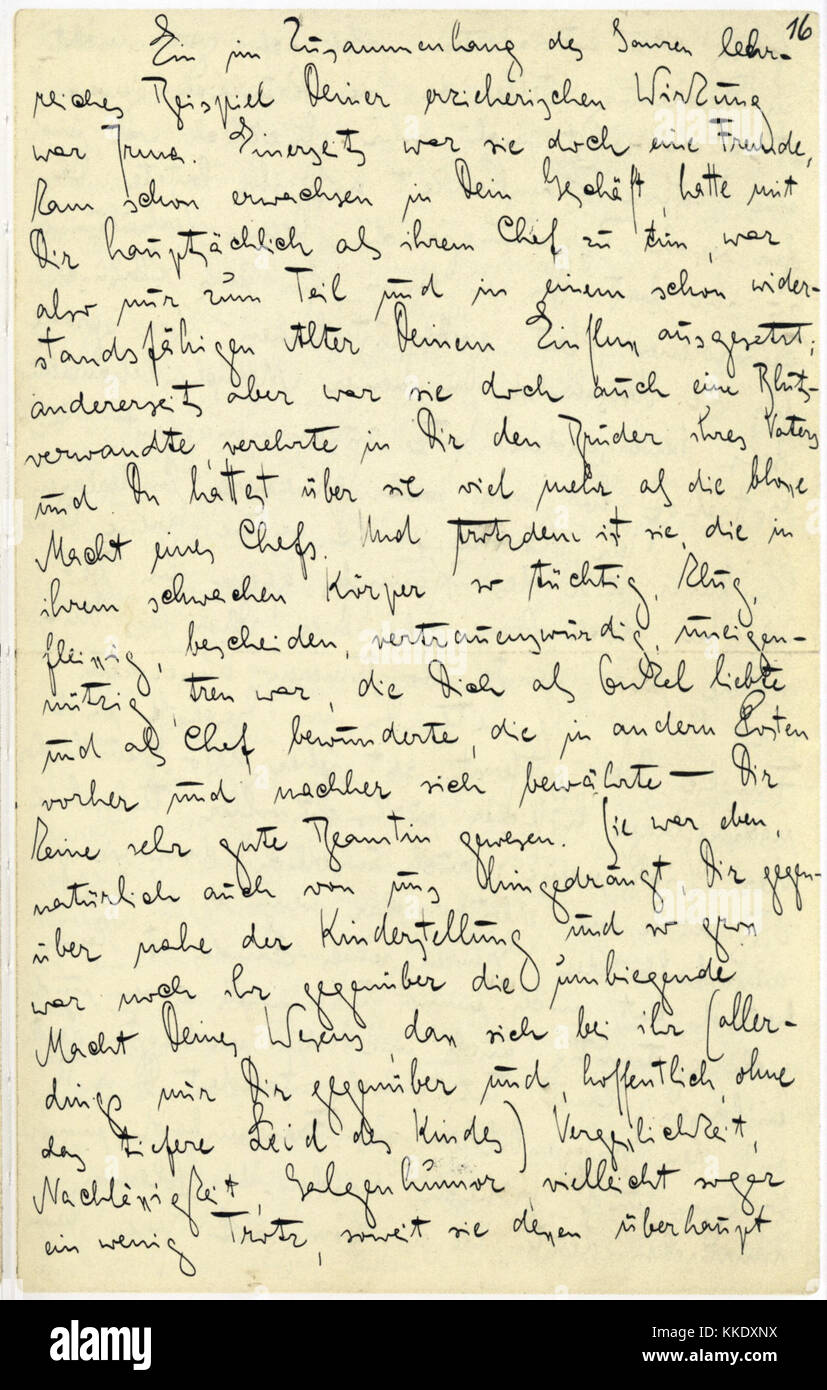 16
Ein im Zusammenhang des Ganzen lehr-
reiches Beispiel Deiner erzieherischen Wirkung
war Irma. Einerseits war sie doch eine Fremde,
kam schon erwachsen in Dein Geschäft, hatte mit
Dir hauptsächlich als ihrem Chef zu tun, war
also nur zum Teil und in einem schon wider-
standsfähigen Alter Deinem Einfluss ausgesetzt;
andererseits aber war sie doch auch eine Bluts-
verwandte, verehrte in Dir den Bruder ihres Vaters
und Du hattest über sie viel mehr als die blosse
Macht eines Chefs. Und trotzdem ist sie, die in
ihrem schwachen Körper so tüchtig, klug,
fleissig, bescheiden, vertrauenswürdig, uneigen-
nützig, treu war, die Dich als Onkel liebte
und als Chef bewunderte, die in andern Posten
vorher und nachher sich bewährte — Dir
keine sehr gute Beamtin gewesen. Sie war eben,
natürlich auch von uns hingedrängt, Dir gegen-
über nahe der Kinderstellung und so gross
war noch ihr gegenüber die umbiegende
Macht Deines Wesens, dass sich bei ihr (aller-
dings nur Dir gegenüber und, hoffentlich, ohne
das tiefere Leid des Kindes) Vergesslichkeit,
Nachlässigkeit, Galgenhumor, vielleicht sogar
ein wenig Trotz, soweit sie dessen überhaupt
alamy
Image ID: KKDXNX
www.alamy.com